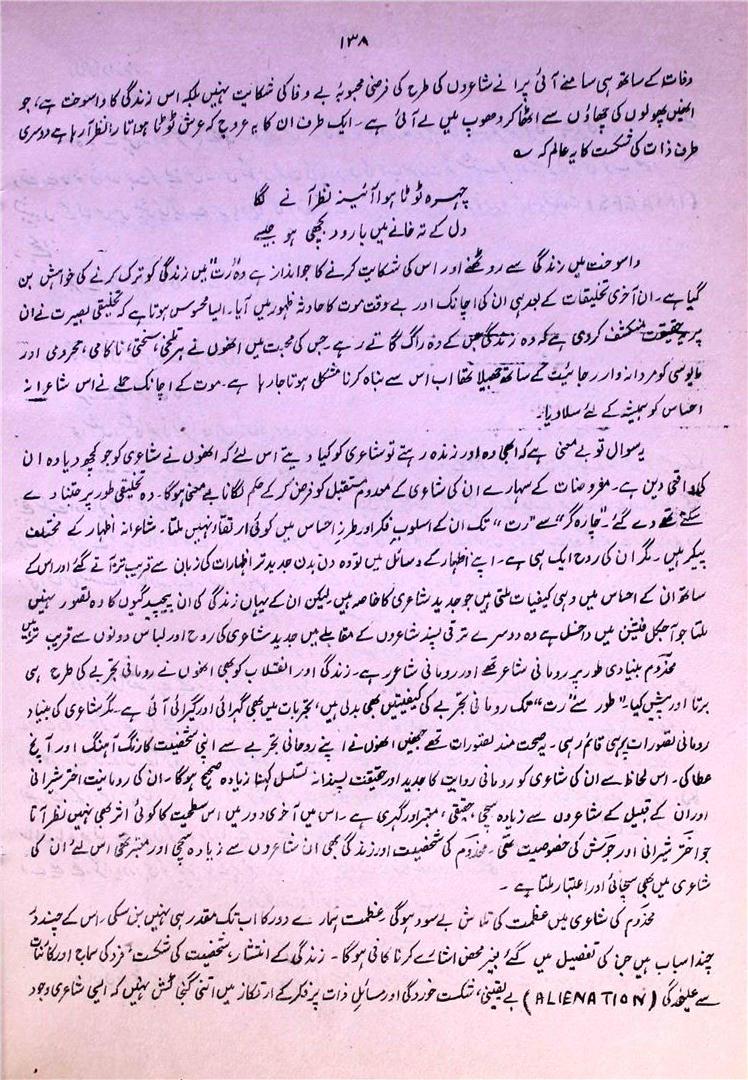 ۱۳۸
وفات کے ساتھ ہی سامنے آئی پرانے شاعروں کی طرح کی فرضی محبوبۂ بے وفا کی شکایت نہیں بلکہ اس زندگی کا واسوخت ہے، جو
انھیں پھولوں کی چھاؤں سے اٹھا کر دھوپ میں لے آئی ہے۔ ایک طرف ان کا یہ عروج کہ عرش ٹوٹا ہوا تارا نظر آرہا ہے دوسری
طرف ذات کی شکست کا یہ عالم کہ ؎
چہرہ ٹوٹا ہوا آئینہ نظر آنے لگا
دل کے تہ خانے میں بارود بچھی ہو جیسے
واسوخت میں زندگی سے روٹھنے اور اس کی شکایت کرنے کا جو انداز ہے وہ "رت" میں زندگی کو ترک کرنے کی خواہش بن
گیا ہے۔ ان آخری تخلیقات کے بعد ہی ان کی اچانک اور بے وقت موت کا حادثہ ظہور میں آیا۔ ایسا محسوس ہوتا ہے کہ تخلیقی بصیرت نے ان
پر یہ حقیقت منکشف کر دی ہے کہ وہ زندگی جس کے وہ راگ گاتے رہے۔ جس کی محبت میں انھوں نے ہر تلخی، سختی، ناکامی، محرومی اور
مایوسی کو مردانہ وار رجائیت کے ساتھ جھیلا تھا اب اس سے نباہ کرنا مشکل ہوتا جارہا ہے۔ موت کے اچانک حملے نے اس شاعرانہ
احساس کو ہمیشہ کے لئے سلا دیا۔
یہ سوال تو بے معنی ہے کہ ابھی وہ اور زندہ رہتے تو شاعری کو کیا دیتے اس لئے کہ انھوں نے شاعری کو جو کچھ دیا وہ ان
کی واقعی دین ہے۔ مفروضات کے سہارے ان کی شاعری کے معدوم مستقبل کو فرض کر کے حکم لگانا بے معنی ہوگا۔ وہ تخلیقی طور پر جتنا دے
سکتے تھے دے گئے۔ "چارہ گر" سے "رت" تک ان کے اسلوبِ فکر اور طرزِ احساس میں کوئی ارتقاء نہیں ملتا۔ شاعرانہ اظہار کے مختلف
پیکر ہیں۔ مگر ان کی روح ایک ہی ہے۔ اپنے اظہار کے وسائل میں تو وہ دن بدن جدید تر اظہارات کی زبان سے قریب تر آتے گئے اور اس کے
ساتھ ان کے احساس میں وہی کیفیات ملتی ہیں جو جدید شاعری کا خاصہ ہیں لیکن ان کے یہاں زندگی کی ان پیچیدگیوں کا وہ تصور نہیں
ملتا جو آجکل فیشن میں داخل ہے وہ دوسرے ترقی پسند شاعروں کے مقابلے میں جدید شاعری کی روح اور لباس دونوں سے قریب تر ہیں
مخدوم بنیادی طور پر رومانی شاعر تھے اور رومانی شاعر رہے۔ زندگی اور انقلاب کو بھی انھوں نے رومانی تجربے کی طرح ہی
برتا اور پیش کیا۔ "طور" سے "رت" تک رومانی تجربے کی کیفیتیں بھی بدلی ہیں، تجربات میں بھی گہرائی اور گیرائی آئی ہے۔ مگر شاعری کی بنیاد
رومانی تصورات پر ہی قائم رہی۔ یہ صحت مند تصورات تھے جنھیں انھوں نے اپنے روحانی تجربے سے اپنی شخصیت کا رنگ و آہنگ اور آنچ
عطا کی۔ اس لحاظ سے ان کی شاعری کو رومانی روایت کا جدید اور حقیقت پسندانہ تسلسل کہنا زیادہ صحیح ہوگا۔ ان کی رومانیت اختر شیرانی
اور ان کے قبیل کے شاعروں سے زیادہ سچی، حقیقی، معتبر اور گہری ہے۔ اس میں آخری دور میں اس سطحیت کا کوئی اثر بھی نہیں نظر آتا
جو اختر شیرانی اور جوش کی خصوصیت تھی۔ مخدوم کی شخصیت اور زندگی بھی ان شاعروں سے زیادہ سچی اور معتبر تھی اس لئے ان کی
شاعری میں بھی سچائی اور اعتبار ملتا ہے۔
مخدوم کی شاعری میں عظمت کی تلاش بے سود ہوگی۔ عظمت ہمارے دور کا اب تک مقدر ہی نہیں بن سکی۔ اس کے چند در
چند اسباب ہیں جن کی تفصیل میں گئے بغیر محض اشارے کرنا کافی ہوگا۔ زندگی کے انتشار، شخصیت کی شکست، فرد کی سماج اور کائنات
سے علیٰحدگی (ALIENATION) بے یقینی، شکست خوردگی اور مسائلِ ذات پر فکر کے ارتکاز میں اتنی گنجائش نہیں کہ ایسی شاعری وجود